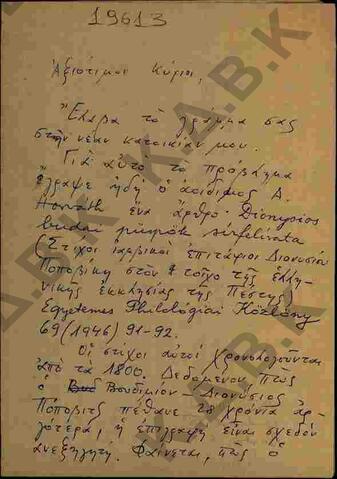 19613
Ἀξιότιμοι Κύριοι,
Ἔλαβα τὸ γράμμα σας
στὴν νέαν κατοικίαν μου.
Γιὰ αὐτὸ τὸ πρόβλημα
ἔγραψε ἤδη ὁ ἀοίδιμος A.
Horváth ἕνα ἄρθρο· Dionysios
budai püspök sírfelirata
(Στίχοι ἰαμβικοὶ ἐπιτάφιοι Διονυσίου
Ποποβίκη στὸν τοῖχο τῆς ἑλλη-
νικῆς ἐκκλησίας τῆς Πέστης)
Egyetemes Philológiai Közlöny
69 (1946) 91-92.
Οἱ στίχοι αὐτοὶ χρονολογοῦνται
ἀπὸ τὰ 1800. Δεδομένου, πὼς
ὁ Βουδιμίου - Διονύσιος
Πόποβιτς πέθανε 28 χρόνια ἀρ-
γότερα, ἡ ἐπιγραφὴ εἶναι σχεδὸν
ἀνεξήγητη. Φαίνεται, πὼς ὁ
Κ.Δ.Β.Κ